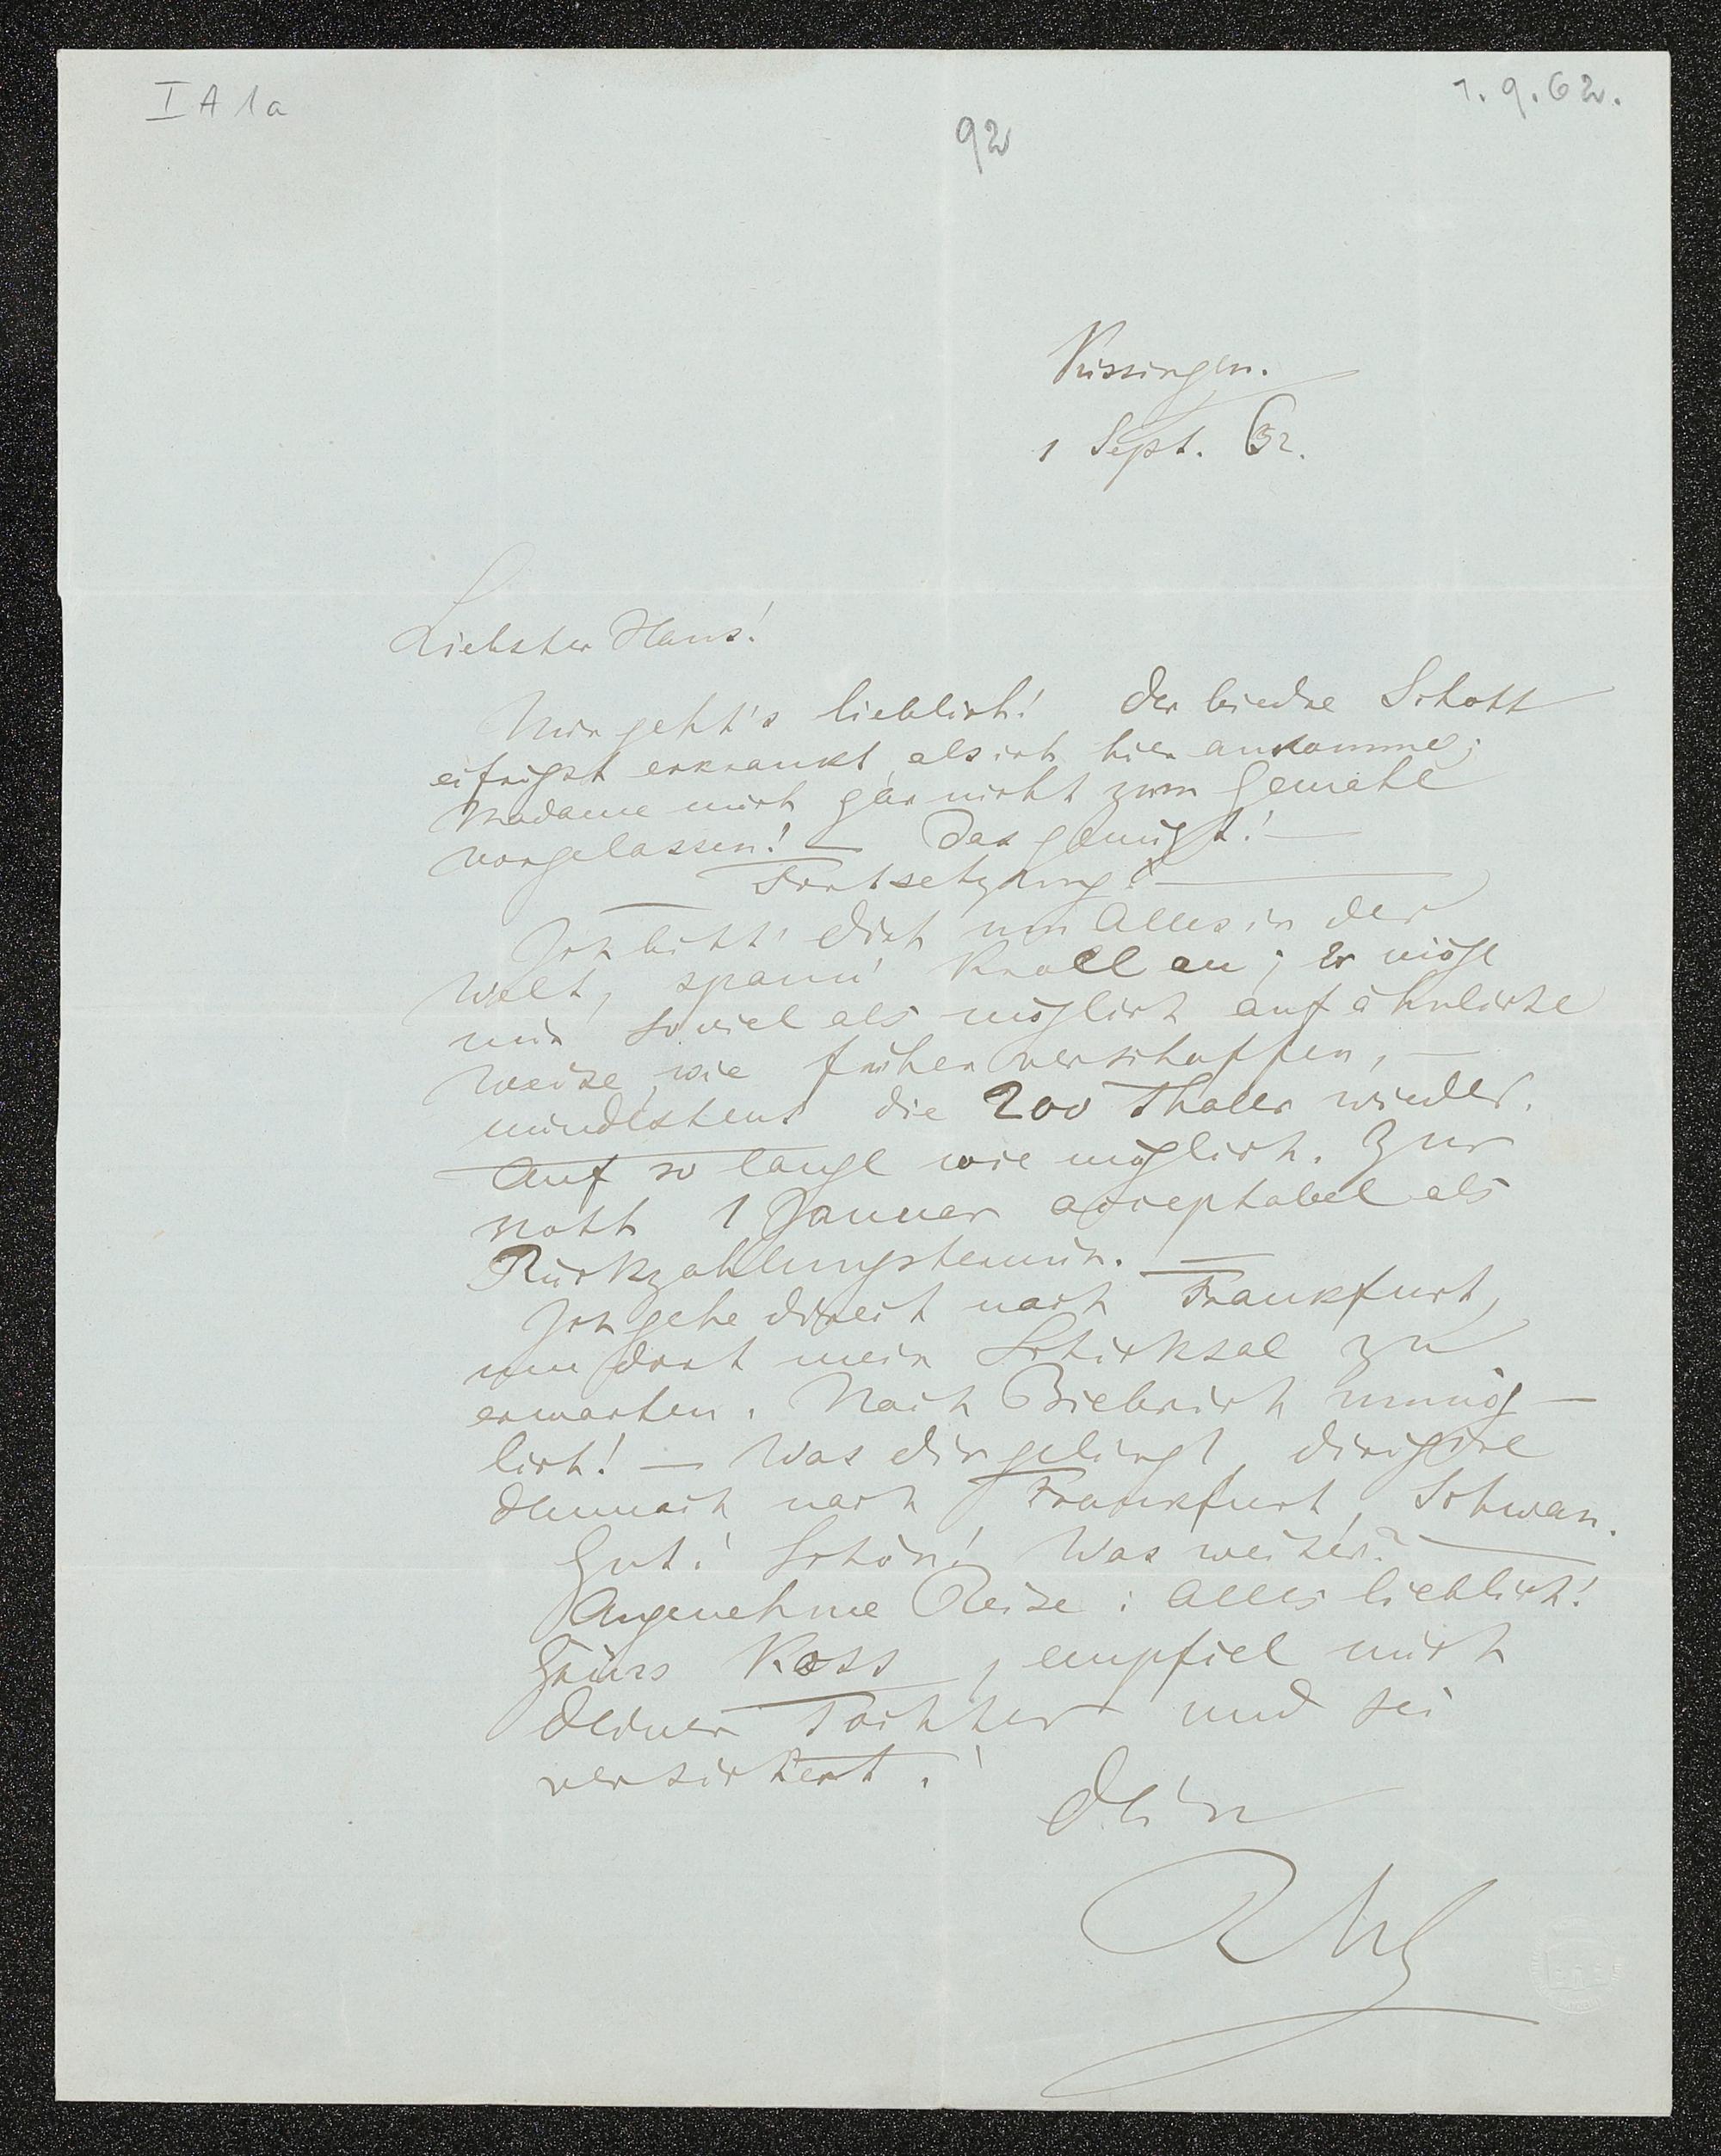 I A 1a
1. 9. 62.
92
Kissingen.
1 Sept. 62.
Liebster Hans!
Mir geht's lieblich! Der biedre Schott
eifrigst erkrankt, als ich hier ankomme;
Madame mich gar nicht zum Gemahl
vorgelassen! — Das genügt! —
Fortsetzung! —
Ich bitt' dich um Alles in der
Welt, spann' Kroll an; er möge
mir so viel als möglich auf ähnliche
Weise, wie früher verschaffen, —
mindestens die 200 Thaler wieder.
Auf so lange wie möglich. Zur
Noth 1 Januar acceptabel als
Rückzahlungstermin. —
Ich gehe direct nach Frankfurt,
um dort mein Schicksal zu
erwarten. Nach Biebrich unmög-
lich! — Was dir gelingt, dirigire
demnach nach Frankfurt, Schwan.
Gut! Schön! Was weiter? —
Angenehme Reise: Alles lieblich!
Grüss, empfiel mich
deiner Tochter und sei
versichert!
Dein
RW